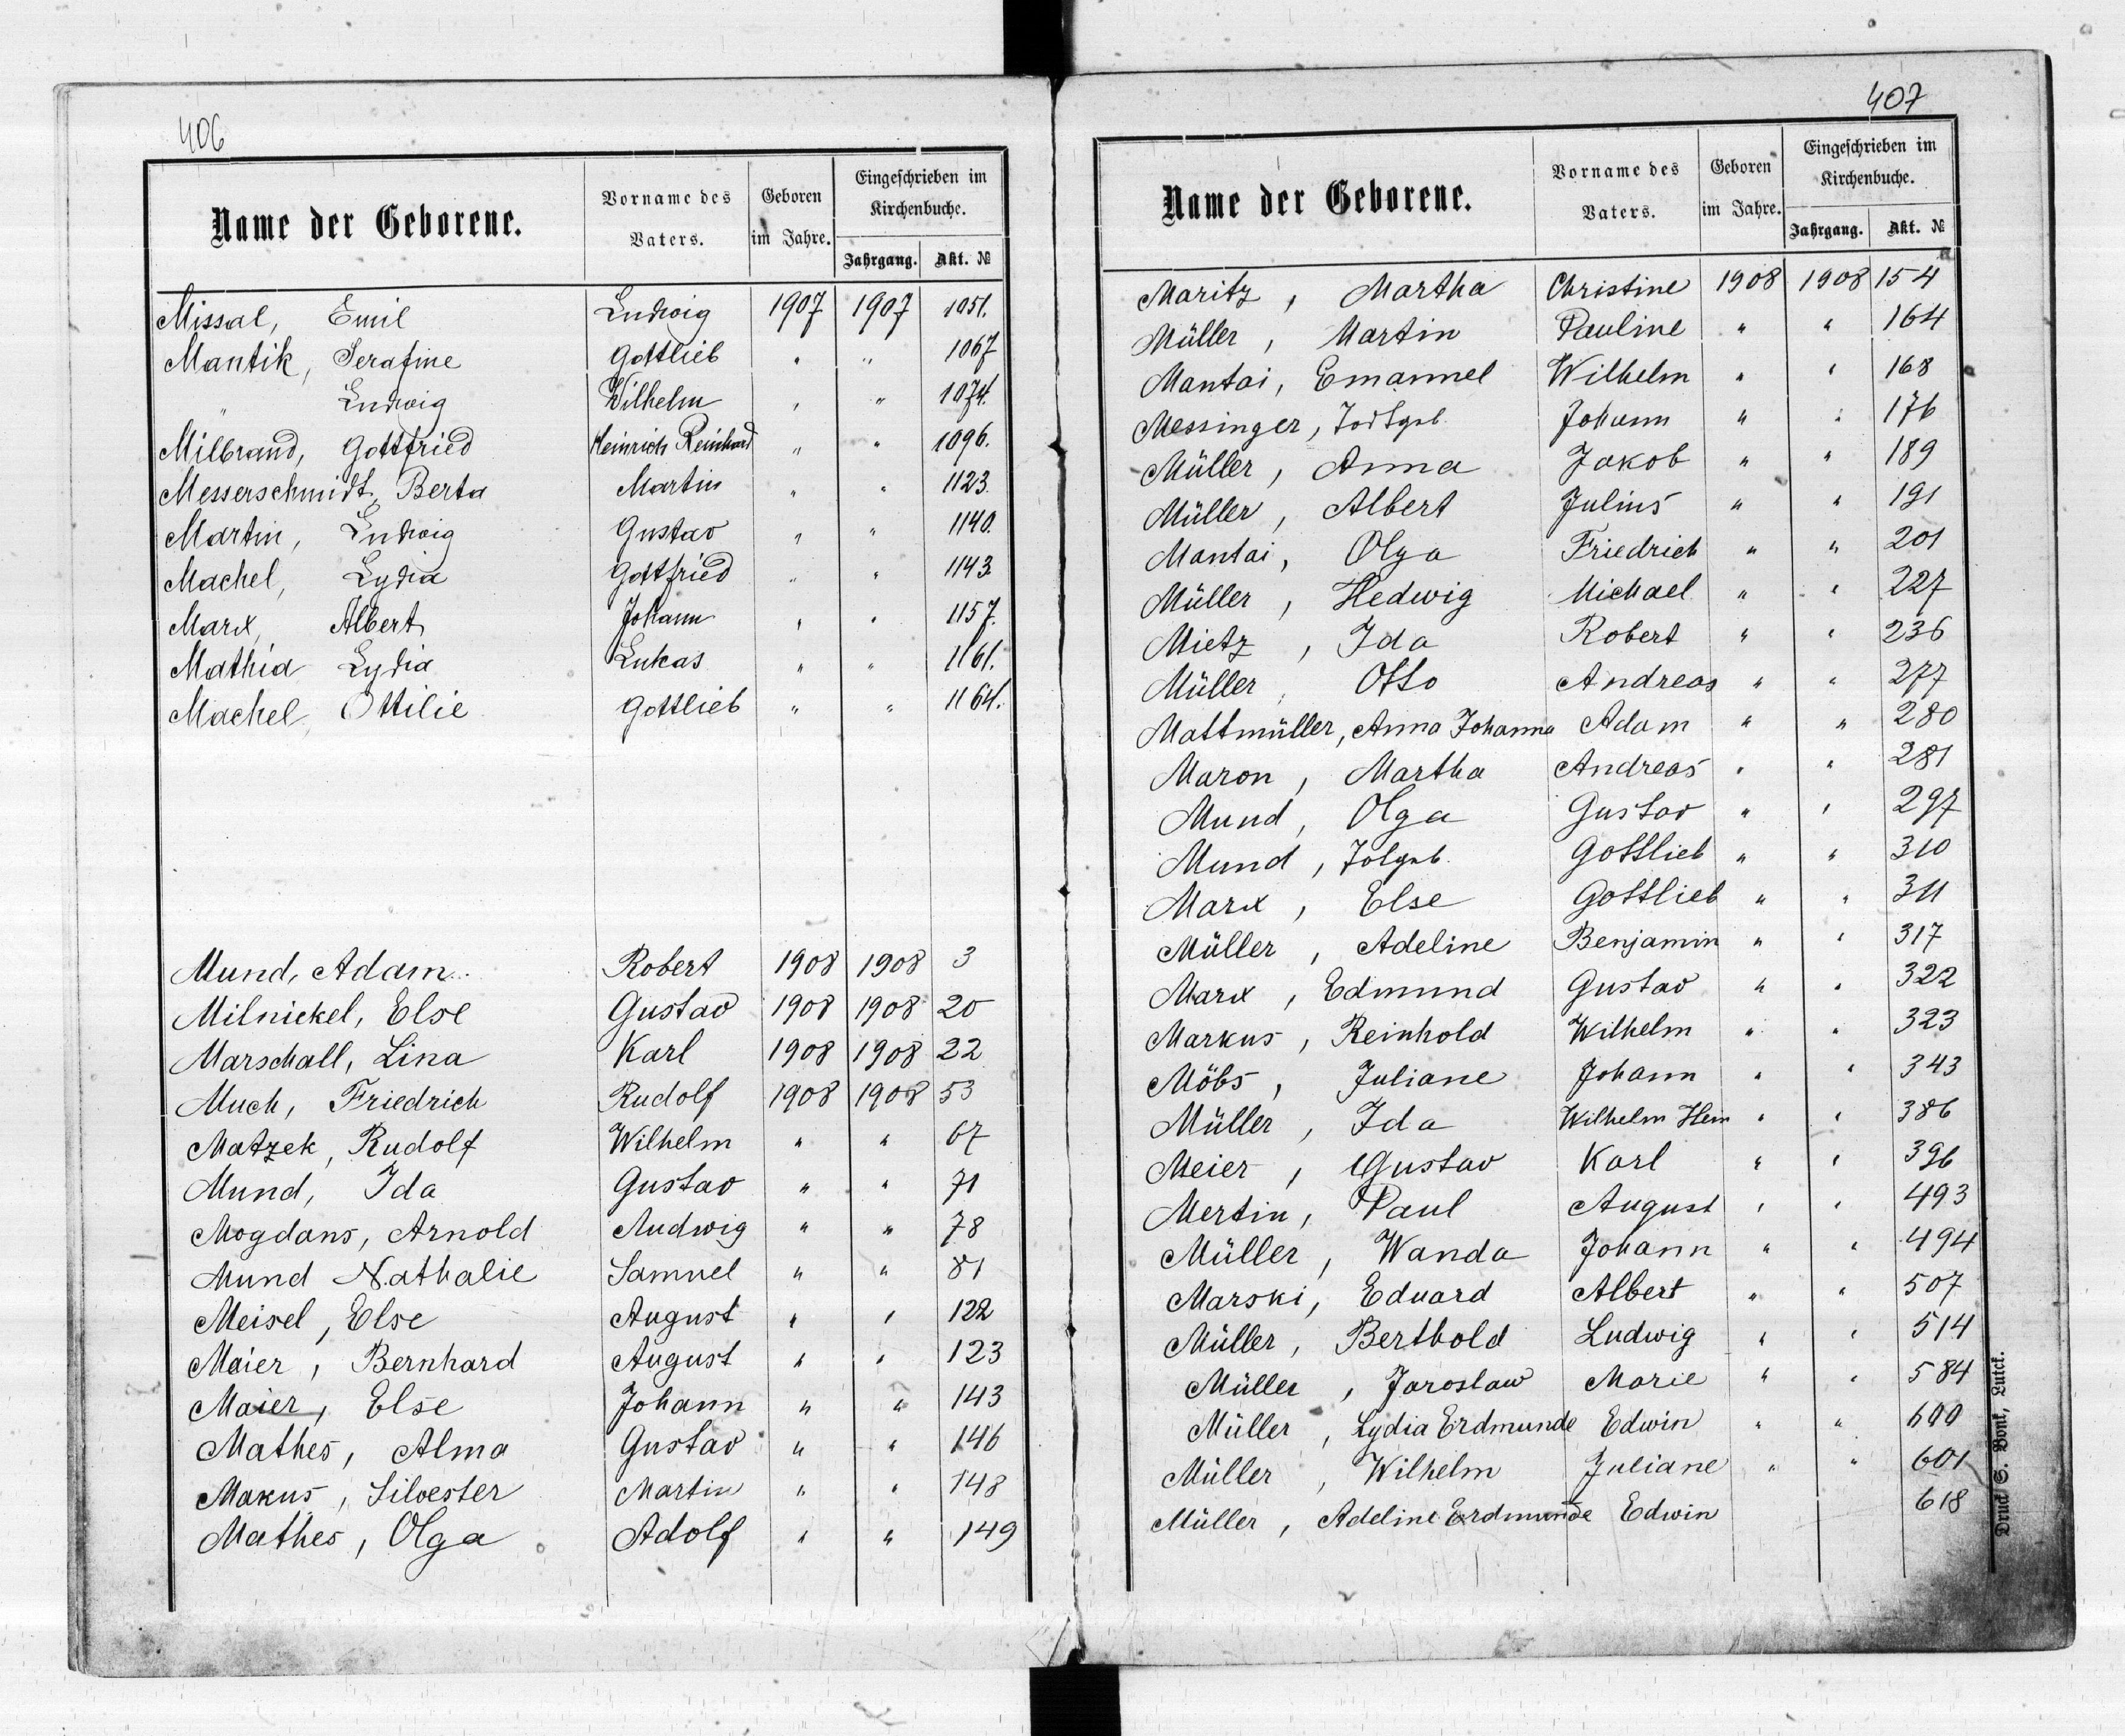 406
Name der Geborene. Vorname des Vaters. Geboren im Jahre. Eingeschrieben im Kirchenbuche. Jahrgang. Akt. №
Missal, Emil Ludwig 1907 1907 1051.
Mantik, Serafine Gottlieb " " 1067
" Ludwig Wilhelm " " 1074.
Milbrand, Gottfried Heinrich Reinhard " " 1096.
Messerschmidt, Berta Martin " " 1123.
Martin, Ludwig Gustav " " 1140.
Machel, Lydia Gottfried " " 1143.
Marx, Albert Johann " " 1157.
Mathia Lydia Lukas " " 1161.
Machel, Ottilie Gottlieb " " 1164.
Mund, Adam. Robert 1908 1908 3
Milnickel, Else Gustav 1908 1908 20
Marschall, Lina Karl 1908 1908 22
Much, Friedrich Rudolf 1908 1908 53
Matzek, Rudolf Wilhelm " " 67
Mund, Ida Gustav " " 71
Mogdans, Arnold Ludwig " " 78
Mund Nathalie Samuel " " 81
Meisel, Else August " " 122
Maier, Bernhard August " " 123
Maier, Else Johann " " 143
Mathes, Alma Gustav " " 146
Makus, Silvester Martin " " 148
Mathes, Olga Adolf " " 149
407
Name der Geborene. Vorname des Vaters. Geboren im Jahre. Eingeschrieben im Kirchenbuche. Jahrgang. Akt. №
Maritz, Martha Christine 1908 1908 154
Müller, Martin Pauline " " 164
Mantai, Emanuel Wilhelm " " 168
Messinger, Todtgeb. Johann " " 176
Müller, Anna Jakob " " 189
Müller, Albert Julius " " 191
Mantai, Olga Friedrich " " 201
Müller, Hedwig Michael " " 227
Mietz, Ida Robert " " 236
Müller, Otto Andreas " " 277
Mattmüller, Anna Johanna Adam " " 280
Maron, Martha Andreas " " 281
Mund, Olga Gustav " " 297
Mund, Totgeb. Gottlieb " " 310
Marx, Else Gottlieb " " 311
Müller, Adeline Benjamin " " 317
Marx, Edmund Gustav " " 322
Markus, Reinhold Wilhelm " " 323
Möbs, Juliane Johann " " 343
Müller, Ida Wilhelm Hein " " 386
Meier, Gustav Karl " " 396
Mertin, Paul August " " 493
Müller, Wanda Johann " " 494
Marski, Eduard Albert " " 507
Müller, Berthold Ludwig " " 514
Müller, Jaroslaw Marie " " 584
Müller, Lydia Erdmunde Edwin " " 600
Müller, Wilhelm Juliane " " 601
Müller, Adeline Erdmunde Edwin 618
Druck S. Bonk, Luck.